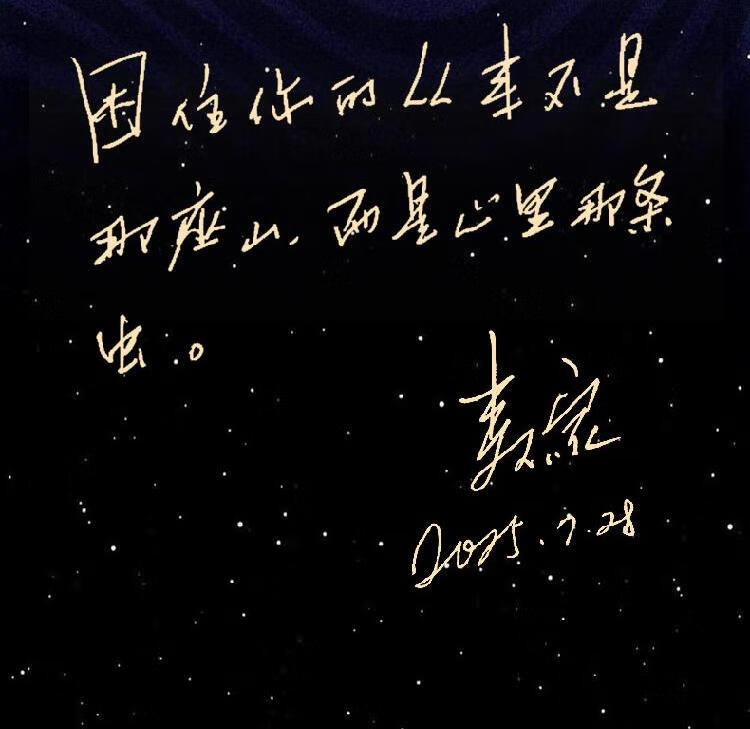 困住你的从来不是
那座山，而是心里那条
虫。
2025.7.28